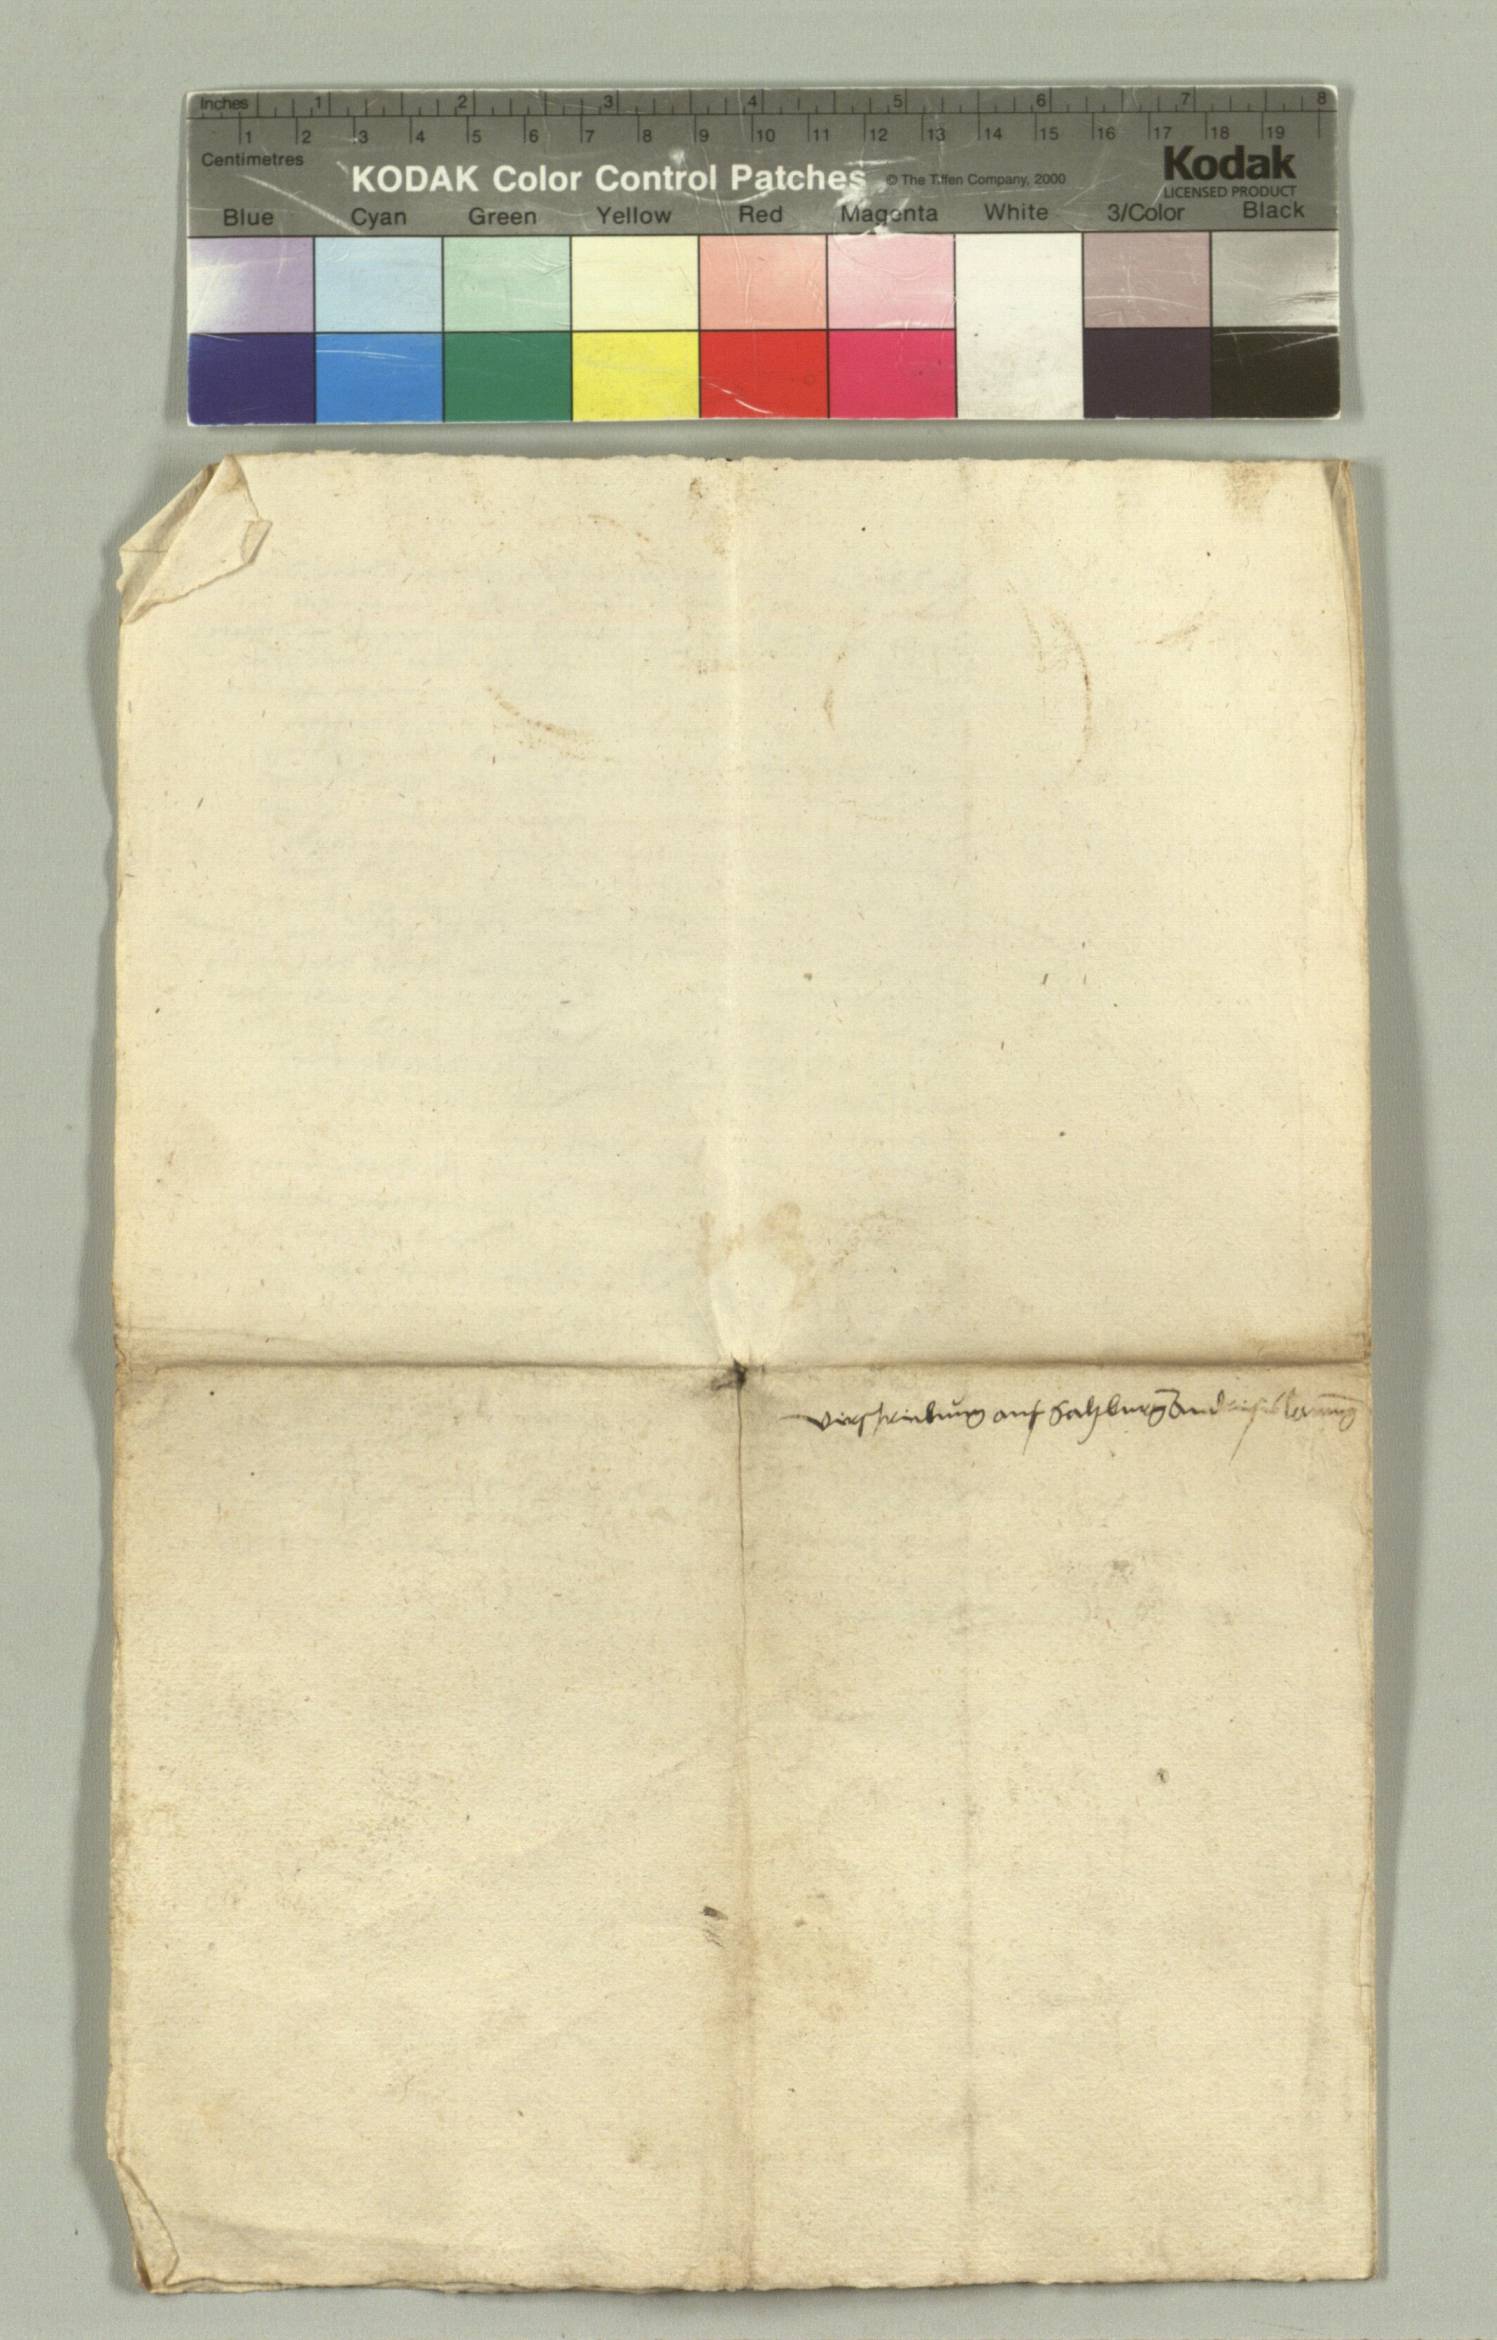 Inches 1 2 3 4 5 6 7 8
1 2 3 4 5 6 7 8 9 10 11 12 13 14 15 16 17 18 19
Centimetres
KODAK Color Control Patches © The Tiffen Company, 2000 Kodak
LICENSED PRODUCT
Blue Cyan Green Yellow Red Magenta White 3/Color Black
verschreibung auf Salzburg